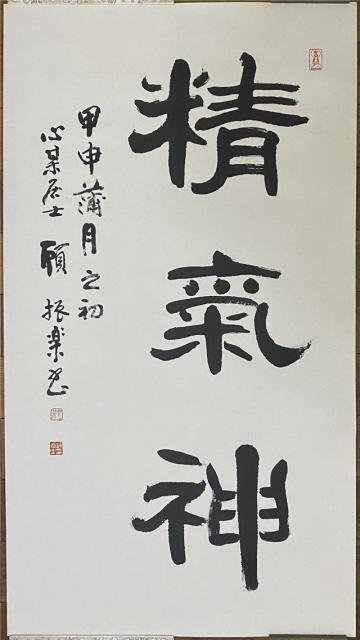 精氣神
甲申蒲月之初
心某居士 顧振楽書